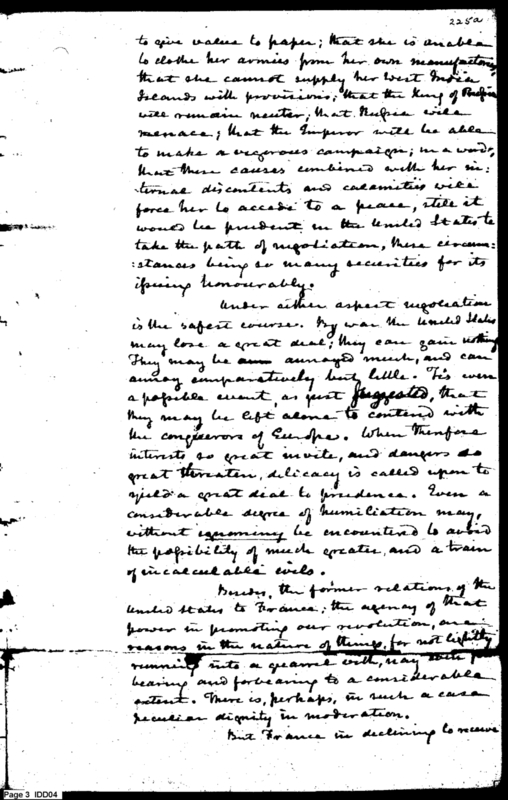 225a
to give value to paper; that she is unable
to clothe her armies from her own manufactories,
that she cannot supply her West India
Islands with provisions; that the King of Prussia
will remain neuter; that Russia will
menace; that the Emperor will be able
to make a vigorous campaign; in a word,
that these causes combined with her in:
ternal discontents and calamities will
force her to accede to a peace, still it
would be prudent in the United States to
take the path of negotiation, these circum:
:stances being so many securities for its
issuing honourably.
Under either aspect negotiation
is the safest course. By war the United States
may lose a great deal; they can gain nothing
They may be annoyed much, and can
annoy comparatively but little. Tis even
a possible event, as just suggested, that
they may be left alone to contend with
the conquerors of Europe. When therefore
interests so great invite, and dangers so
great threaten, delicacy is called upon to
yield a great deal to prudence. Even a
considerable degree of humiliation may,
without ignominy be encountered to avoid
the possibility of much greater, and a train
of incalculable evils.
Besides, the former relations of the
United States to France; the agency of that
power in promoting our revolution, are
reasons in the nature of things, for not lightly
running into a quarrel with, nay even for
bearing and forbearing to a considerable
extent. There is, perhaps, in such a case
peculiar dignity in moderation.
But France in declining to receive
Page 3 IDD04